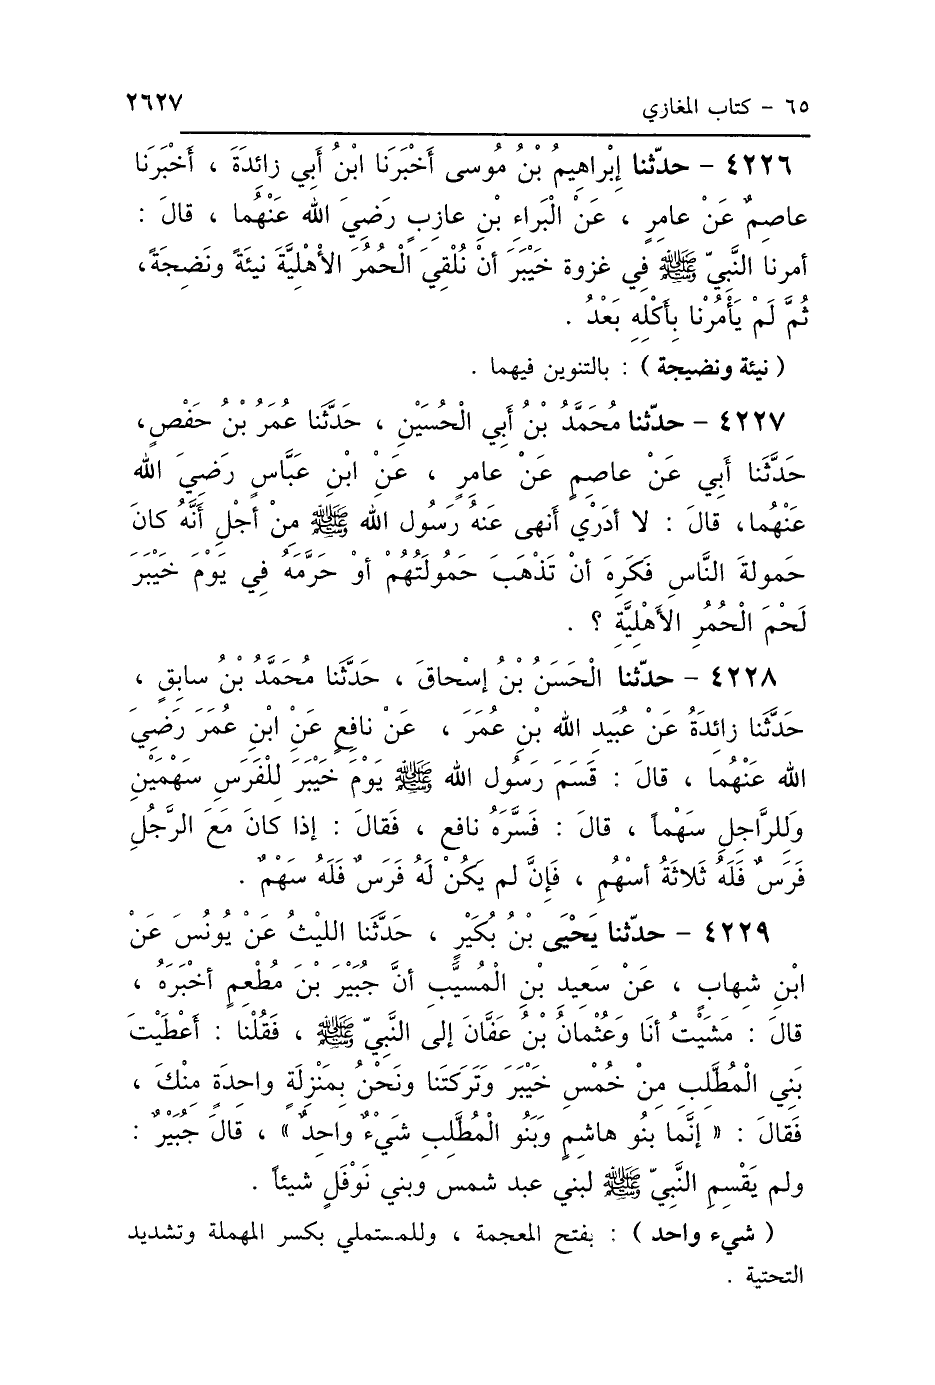 ٦٥ - كتاب المغازي ٢٦٢٧
٤٢٢٦ - حدّثنا إِبْراهِيمُ بْنُ مُوسى أَخْبَرَنا ابْنُ أَبي زائِدَةَ ، أَخْبَرَنا
عاصِمٌ عَنْ عامِرٍ ، عَنْ الْبَراءِ بْنِ عازِبٍ رَضِيَ الله عَنْهُما ، قالَ :
أمرنا النَّبِيّ ﷺ فِي غزوة خَيْبَرَ أَنْ نُلْقِيَ الْحُمُرَ الأَهْلِيَّةَ نيئَةً ونَضِجَةً،
ثُمَّ لَمْ يَأْمُرْنا بِأَكْلِهِ بَعْدُ .
( نيئة ونضيجة ) : بالتنوين فيهما .
٤٢٢٧ - حدّثنا مُحَمَّدُ بْنُ أَبي الْحُسَيْنِ ، حَدَّثَنا عُمَرُ بْنُ حَفْصٍ،
حَدَّثَنا أَبي عَنْ عاصِمٍ عَنْ عامِرٍ ، عَنْ ابْنِ عَبَّاسٍ رَضِيَ الله
عَنْهُما، قالَ : لا أَدَرْي أَنهى عَنهُ رَسُول الله ﷺ مِنْ أَجْلِ أَنَّهُ كانَ
حمولةَ النَّاسِ فَكَرِهَ أَنْ تَذْهَبَ حَمُولَتُهُمْ أَوْ حَرَّمَهُ فِي يَوْمَ خَيْبَرَ
لَحْمَ الْحُمُرِ الأَهْلِيَّةِ ؟ .
٤٢٢٨ - حدّثنا الْحَسَنُ بْنُ إِسْحاقَ ، حَدَّثَنا مُحَمَّدُ بْنُ سابِقٍ ،
حَدَّثَنا زائِدَةُ عَنْ عُبَيدِ الله بْنِ عُمَرَ ، عَنْ نافِعٍ عَنْ ابْنِ عُمَرَ رَضِيَ
الله عَنْهُما ، قالَ : قَسَمَ رَسُول الله ﷺ يَوْمَ خَيْبَرَ لِلْفَرَسِ سَهْمَيْنِ
وَلِلرَّاجِلِ سَهْماً ، قالَ : فَسَّرَهُ نافع ، فَقالَ : إذا كانَ مَعَ الرَّجُلِ
فَرَسٌ فَلَهُ ثَلاثَةُ أَسْهُمٍ ، فَإِنَّ لم يَكُنْ لَهُ فَرَسٌ فَلَهُ سَهْمٌ .
٤٢٢٩ - حدّثنا يَحْيَى بْنُ بُكَيْرٍ ، حَدَّثَنا الليْثُ عَنْ يُونُسَ عَنْ
ابْنِ شهابٍ ، عَنْ سَعِيدِ بْنِ الْمُسيَّبِ أَنَّ جُبَيْرَ بْنَ مُطْعِمٍ أخْبَرَهُ ،
قالَ : مَشَيْتُ أَنَا وَعُثْمانُ بْنُ عَفَّانَ إلى النَّبِيّ ﷺ ، فَقُلْنا : أَعْطَيْتَ
بَنِي الْمُطَّلِبِ مِنْ خُمْسِ خَيْبَرَ وَتَرَكتَنا ونَحْنُ بِمَنْزِلَةٍ واحِدَةٍ مِنْكَ ،
فَقالَ : « إنَّما بنُو هاشِمٍ وَبَنُو الْمُطَّلِبِ شَيْءٌ واحِدٌ » ، قالَ جُبَيْرٌ :
ولم يَقْسِمِ النَّبِيّ ﷺ لبني عبد شمس وبني نَوْفَلٍ شيئاً .
( شيء واحد ) : بفتح المعجمة ، وللمستملي بكسر المهملة وتشديد
التحتية .